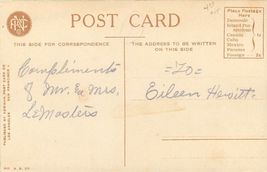 POST CARD
THIS SIDE FOR CORRESPONDENCE
THE ADDRESS TO BE WRITTEN
ON THIS SIDE
Place Postage Here
Domestic
Canada
Cuba
Mexico
Foreign
Compliments
of Mr. & Mrs.
LeMasters
=To=
Eileen Hewitt